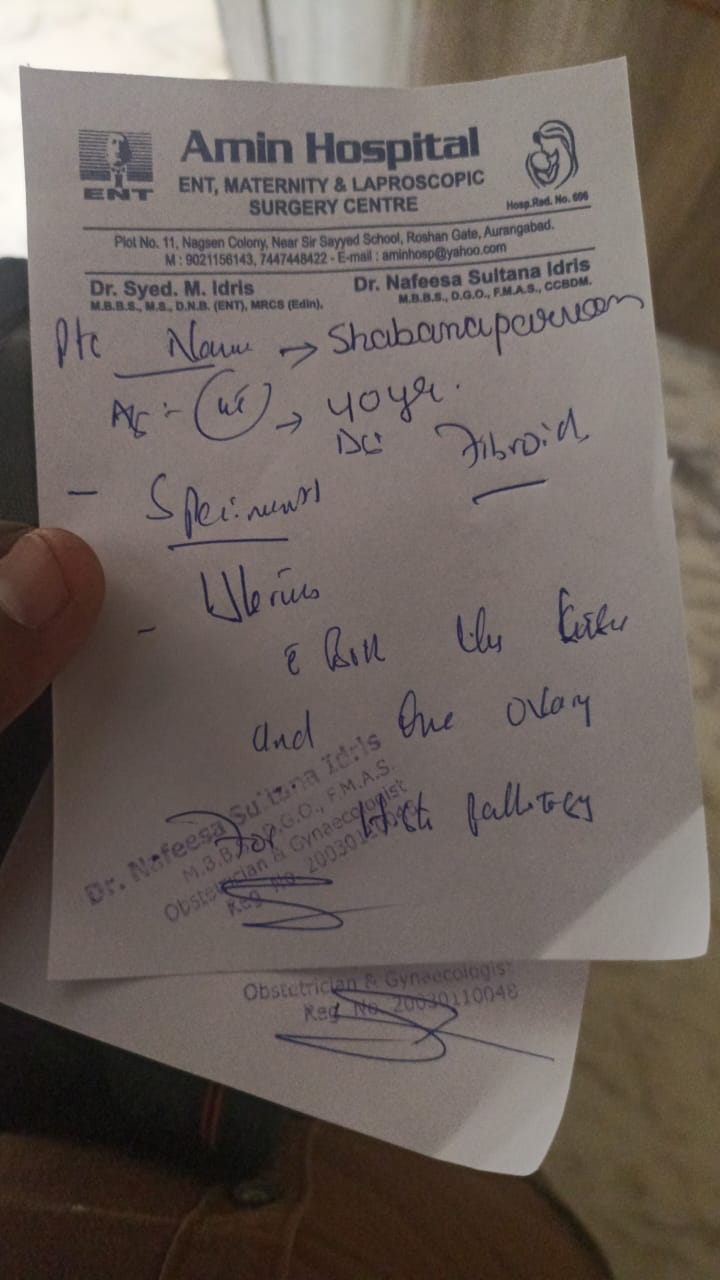 ENT
Amin Hospital
ENT, MATERNITY & LAPROSCOPIC
SURGERY CENTRE
Hosp.Red. No. 606
Plot No. 11, Nagsen Colony, Near Sir Sayyed School, Roshan Gate, Aurangabad.
M : 9021156143, 7447448422 - E-mail : aminhosp@yahoo.com
Dr. Syed. M. Idris
M.B.B.S., M.S., D.N.B. (ENT), MRCS (Edin).
Dr. Nafeesa Sultana Idris
M.B.B.S., D.G.O., F.M.A.S., CCBDM.
Name → Shabanaparveen
→ 40 yr.
Fibroid
-
Uterus
-
and one ovary
For
Dr. Nafeesa Sultana Idris
M.B.B.S., D.G.O., F.M.A.S.
Obstetrician & Gynaecologist
Reg No
Obstetrician & Gynaecologist
Reg No 20030110048